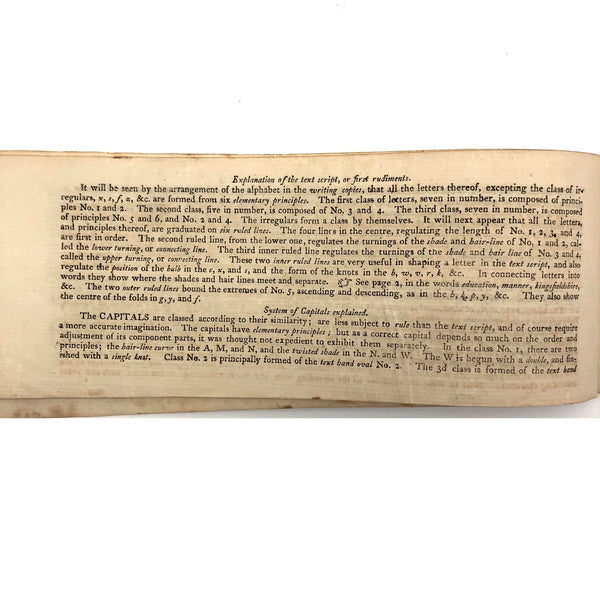 Explanation of the text script, or first rudiments.
It will be seen by the arrangement of the alphabet in the writing copies, that all the letters thereof, excepting the class of ir-
regulars, x, s, f, z, &c. are formed from six elementary principles. The first class of letters, seven in number, is composed of princi-
ples No. 1 and 2. The second class, five in number, is composed of No. 3 and 4. The third class, seven in number, is composed
of principles No. 5 and 6, and No. 2 and 4. The irregulars form a class by themselves. It will next appear that all the letters,
and principles thereof, are graduated on six ruled lines. The four lines in the centre, regulating the length of No. 1, 2, 3, and 4,
are first in order. The second ruled line, from the lower one, regulates the turnings of the shade and hair-line of No. 1 and 2, cal-
led the lower turning, or connecting line. The third inner ruled line regulates the turnings of the shade and hair line of No. 3 and 4,
called the upper turning, or connecting line. These two inner ruled lines are very useful in shaping a letter in the text script, and also
regulate the position of the bulb in the c, x, and s, and the form of the knots in the b, w, v, r, k, &c. In connecting letters into
words they show where the shades and hair lines meet and separate. ☞ See page 2, in the words education, manner, kingsfieldshire,
&c. The two outer ruled lines bound the extremes of No. 5, ascending and descending, as in the b, k, p, y, &c. They also show
the centre of the folds in g, y, and f.
System of Capitals explained.
The CAPITALS are classed according to their similarity; are less subject to rule than the text script, and of course require
a more accurate imagination. The capitals have elementary principles; but as a correct capital depends so much on the order and
adjustment of its component parts, it was thought not expedient to exhibit them separately. In the class No. 1, there are two
principles; the hair-line curve in the A, M, and N, and the twisted shade in the N. and W. The W is begun with a double, and fin-
ished with a single knot. Class No. 2 is principally formed of the text hand oval No. 2. The 3d class is formed of the text hand